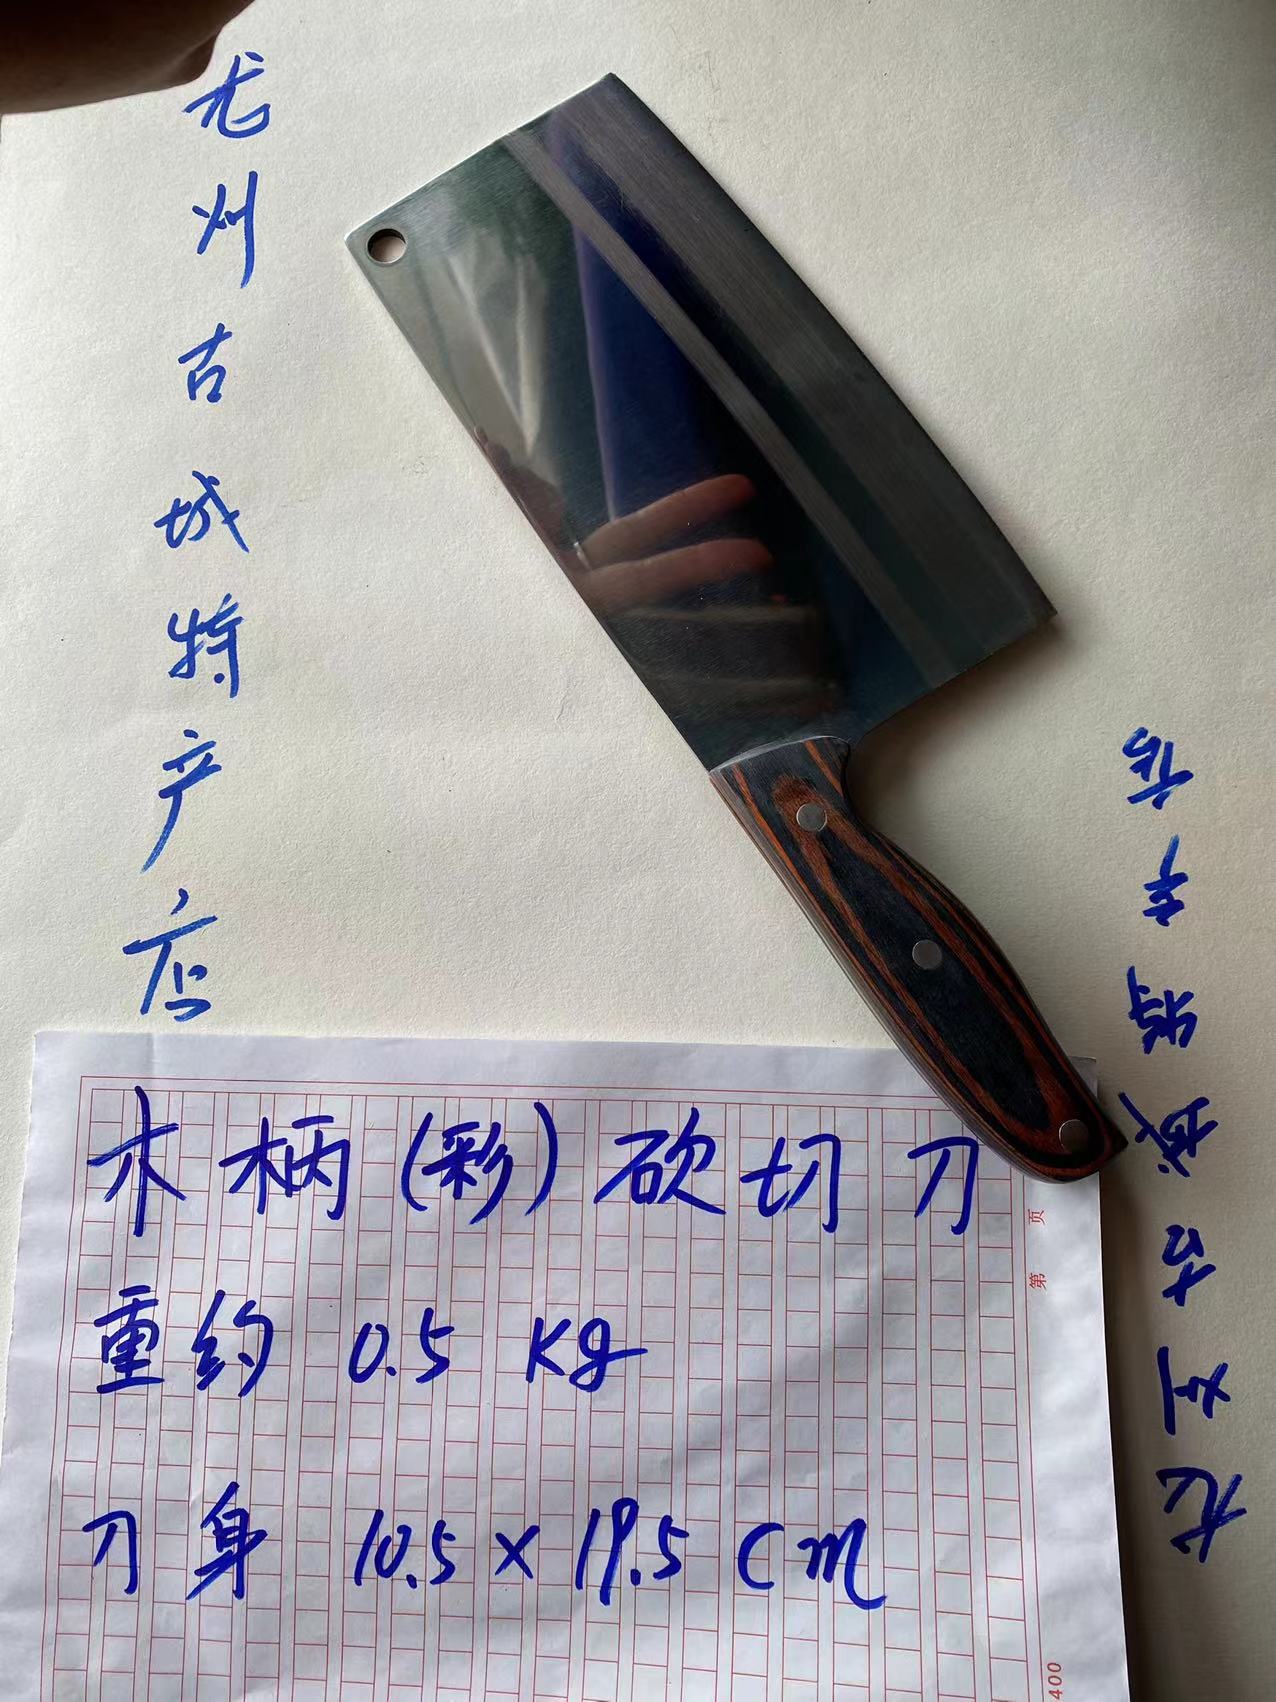 龙州古城特产店
木柄(彩)砍切刀
重约 0.5 Kg
刀身 10.5×19.5 cm
龙州古城特产店
第 页
400